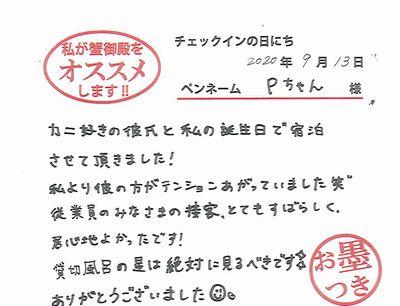 私が蟹御殿を
オススメ
します!!
チェックインの日にち
2020年 9月 13日
ペンネーム Pちゃん 様
カニ好きの彼氏と私の誕生日で宿泊
させて頂きました!
私より彼の方がテンションあがっていました笑
従業員のみなさまの接客、とてもすばらしく、
居心地よかったです!
貸切風呂の星は絶対に見るべきです
ありがとうございました☺。
お墨
つき